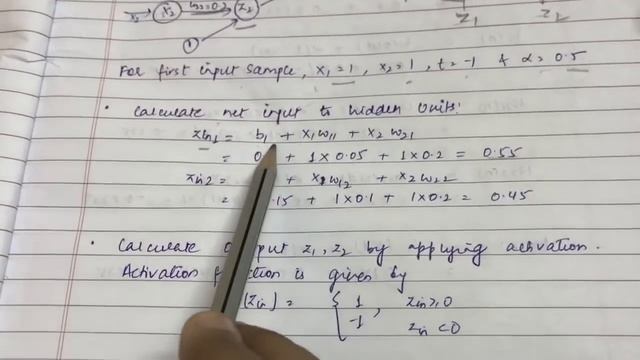 x2 X2 w22=0.2 Z2
1
Z1 Z2
For first input sample, x1=1, x2=1, t=-1 & α=0.5
• Calculate net input to hidden units:
zin1 = b1 + x1w11 + x2w21
= + 1×0.05 + 1×0.2 = 0.55
zin2 = + x1w12 + x2w22
= .15 + 1×0.1 + 1×0.2 = 0.45
• Calculate output z1, z2 by applying activation.
Activation function is given by
(zin) = { 1, zin≥0
-1 zin<0